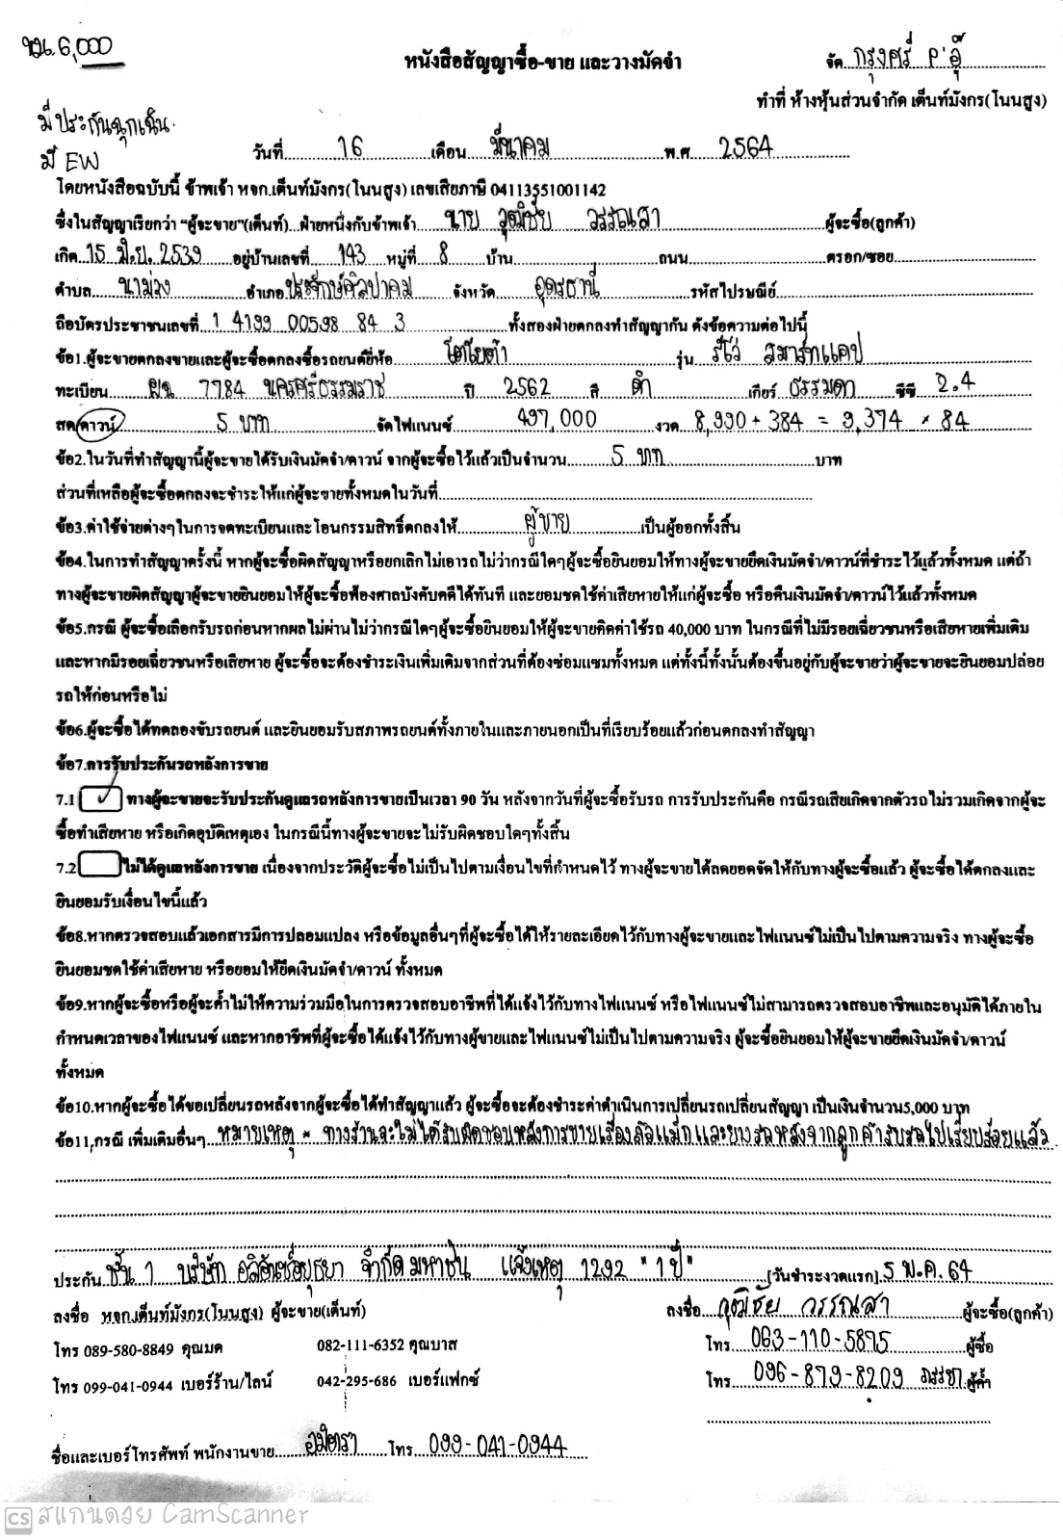 ชน. 6,000
หนังสือสัญญาซื้อ-ขาย และวางมัดจำ
จัด กรุงศรี P'อุ๊
ทำที่ ห้างหุ้นส่วนจำกัด เต็นท์มังกร(โนนสูง)
มีประกันฉุกเฉิน
มี EW
วันที่ 16 เดือน มีนาคม พ.ศ 2564
โดยหนังสือฉบับนี้ ข้าพเจ้า หจก.เต็นท์มังกร(โนนสูง) เลขเสียภาษี 04113551001142
ซึ่งในสัญญาเรียกว่า "ผู้จะขาย"(เต็นท์) ฝ่ายหนึ่งกับข้าพเจ้า นาย วุฒิชัย วรรณสา ผู้จะซื้อ(ลูกค้า)
เกิด 15 มิ.ย. 2539 อยู่บ้านเลขที่ 143 หมู่ที่ 8 บ้าน ถนน ตรอก/ซอย
ตำบล นาม่วง อำเภอ ประจักษ์ศิลปาคม จังหวัด อุดรธานี รหัสไปรษณีย์
ถือบัตรประชาชนเลขที่ 1 4199 00598 84 3 ทั้งสองฝ่ายตกลงทำสัญญากัน ดังข้อความต่อไปนี้
ข้อ1.ผู้จะขายตกลงขายและผู้จะซื้อตกลงซื้อรถยนต์ยี่ห้อ โตโยต้า รุ่น รีโว่ สมาร์ทแคป
ทะเบียน ผฉ 7784 นครศรีธรรมราช ปี 2562 สี ดำ เกียร์ ธรรมดา ซีซี 2.4
สด/ดาวน์ 5 บาท จัดไฟแนนซ์ 497,000 งวด 8,990 + 384 = 9,374 × 84
ข้อ2.ในวันที่ทำสัญญานี้ผู้จะขายได้รับเงินมัดจำ/ดาวน์ จากผู้จะซื้อไว้แล้วเป็นจำนวน 5 บาท บาท
ส่วนที่เหลือผู้จะซื้อตกลงจะชำระให้แก่ผู้จะขายทั้งหมดในวันที่
ข้อ3.ค่าใช้จ่ายต่างๆในการจดทะเบียนและโอนกรรมสิทธิ์ตกลงให้ ผู้ขาย เป็นผู้ออกทั้งสิ้น
ข้อ4.ในการทำสัญญาครั้งนี้ หากผู้จะซื้อผิดสัญญาหรือยกเลิกไม่เอารถไม่ว่ากรณีใดๆผู้จะซื้อยินยอมให้ทางผู้จะขายยึดเงินมัดจำ/ดาวน์ที่ชำระไว้แล้วทั้งหมด แต่ถ้า
ทางผู้จะขายผิดสัญญาผู้จะขายยินยอมให้ผู้จะซื้อฟ้องศาลบังคับคดีได้ทันที และยอมชดใช้ค่าเสียหายให้แก่ผู้จะซื้อ หรือคืนเงินมัดจำ/ดาวน์ไว้แล้วทั้งหมด
ข้อ5.กรณี ผู้จะซื้อเลือกรับรถก่อนหากผลไม่ผ่านไม่ว่ากรณีใดๆผู้จะซื้อยินยอมให้ผู้จะขายคิดค่าใช้รถ 40,000 บาท ในกรณีที่ไม่มีรอยเฉี่ยวชนหรือเสียหายเพิ่มเติม
และหากมีรอยเฉี่ยวชนหรือเสียหาย ผู้จะซื้อจะต้องชำระเงินเพิ่มเติมจากส่วนที่ต้องซ่อมแซมทั้งหมด แต่ทั้งนี้ทั้งนั้นต้องขึ้นอยู่กับผู้จะขายว่าผู้จะขายจะยินยอมปล่อย
รถให้ก่อนหรือไม่
ข้อ6.ผู้จะซื้อได้ทดลองขับรถยนต์ และยินยอมรับสภาพรถยนต์ทั้งภายในและภายนอกเป็นที่เรียบร้อยแล้วก่อนตกลงทำสัญญา
ข้อ7.การรับประกันรถหลังการขาย
7.1 ✓ ทางผู้จะขายจะรับประกันดูแลรถหลังการขายเป็นเวลา 90 วัน หลังจากวันที่ผู้จะซื้อรับรถ การรับประกันคือ กรณีรถเสียเกิดจากตัวรถ ไม่รวมเกิดจากผู้จะ
ซื้อทำเสียหาย หรือเกิดอุบัติเหตุเอง ในกรณีนี้ทางผู้จะขายจะไม่รับผิดชอบใดๆทั้งสิ้น
7.2 ไม่ได้ดูแลหลังการขาย เนื่องจากประวัติผู้จะซื้อไม่เป็นไปตามเงื่อนไขที่กำหนดไว้ ทางผู้จะขายได้ลดยอดจัดให้กับทางผู้จะซื้อแล้ว ผู้จะซื้อได้ตกลงและ
ยินยอมรับเงื่อนไขนี้แล้ว
ข้อ8.หากตรวจสอบแล้วเอกสารมีการปลอมแปลง หรือข้อมูลอื่นๆที่ผู้จะซื้อได้ให้รายละเอียดไว้กับทางผู้จะขายและไฟแนนซ์ไม่เป็นไปตามความจริง ทางผู้จะซื้อ
ยินยอมชดใช้ค่าเสียหาย หรือยอมให้ยึดเงินมัดจำ/ดาวน์ ทั้งหมด
ข้อ9.หากผู้จะซื้อหรือผู้จะค้ำไม่ให้ความร่วมมือในการตรวจสอบอาชีพที่ได้แจ้งไว้กับทางไฟแนนซ์ หรือไฟแนนซ์ไม่สามารถตรวจสอบอาชีพและอนุมัติได้ภายใน
กำหนดเวลาของไฟแนนซ์ และหากอาชีพที่ผู้จะซื้อได้แจ้งไว้กับทางผู้ขายและไฟแนนซ์ไม่เป็นไปตามความจริง ผู้จะซื้อยินยอมให้ผู้จะขายยึดเงินมัดจำ/ดาวน์
ทั้งหมด
ข้อ10.หากผู้จะซื้อได้ขอเปลี่ยนรถหลังจากผู้จะซื้อได้ทำสัญญาแล้ว ผู้จะซื้อจะต้องชำระค่าดำเนินการเปลี่ยนรถเปลี่ยนสัญญา เป็นเงินจำนวน5,000 บาท
ข้อ11.กรณี เพิ่มเติมอื่นๆ หมายเหตุ * ทางร้านจะไม่ได้รับผิดชอบหลังการขายเรื่องล้อแม็กและยางรถหลังจากลูกค้ารับรถไปเรียบร้อยแล้ว
ประกัน ชั้น 1 บริษัท อลิอันซ์อยุธยา จำกัด มหาชน แจ้งเหตุ 1292 "1 ปี" [วันชำระงวดแรก] 5 พ.ค. 64
ลงชื่อ หจก.เต็นท์มังกร(โนนสูง) ผู้จะขาย(เต็นท์) ลงชื่อ วุฒิชัย วรรณสา ผู้จะซื้อ(ลูกค้า)
โทร 089-580-8849 คุณมด 082-111-6352 คุณบาส โทร 063-110-5895 ผู้ซื้อ
โทร 099-041-0944 เบอร์ร้าน/ไลน์ 042-295-686 เบอร์แฟกซ์ โทร 096-879-8209 ผู้ค้ำ
ชื่อและเบอร์โทรศัพท์ พนักงานขาย โทร 099-041-0944
CS สแกนด้วย CamScanner